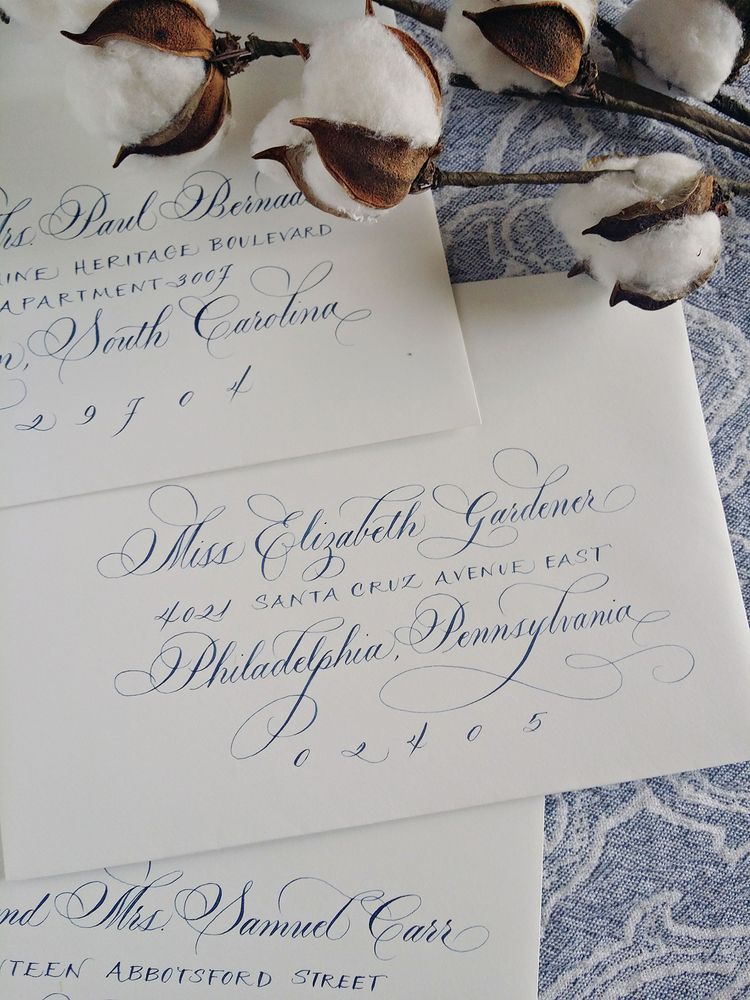 Mrs. Paul
HERITAGE BOULEVARD
APARTMENT-3007
South Carolina
29704
Miss Elizabeth Gardener
4021 SANTA CRUZ AVENUE EAST
Philadelphia, Pennsylvania
02405
and Mrs. Samuel Carr
ABBOTSFORD STREET